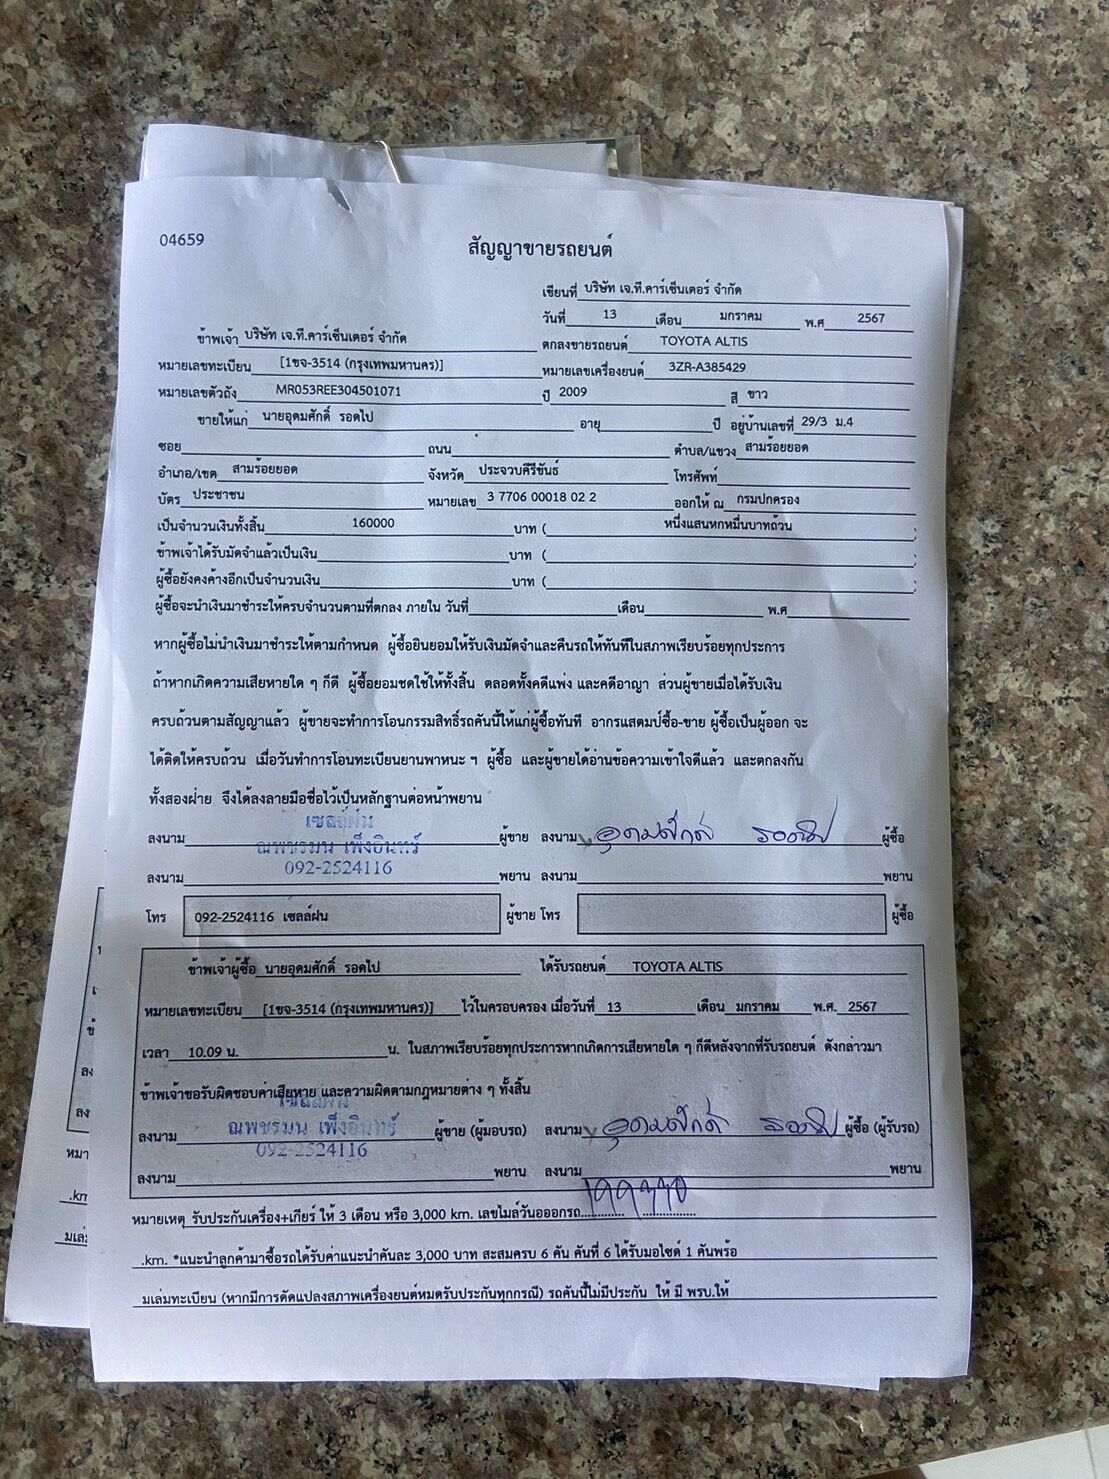 04659
สัญญาขายรถยนต์
เขียนที่ บริษัท เจ.ที.คาร์เซ็นเตอร์ จำกัด
วันที่ 13 เดือน มกราคม พ.ศ 2567
ข้าพเจ้า บริษัท เจ.ที.คาร์เซ็นเตอร์ จำกัด ตกลงขายรถยนต์ TOYOTA ALTIS
หมายเลขทะเบียน [1ขจ-3514 (กรุงเทพมหานคร)] หมายเลขเครื่องยนต์ 3ZR-A385429
หมายเลขตัวถัง MR053REE304501071 ปี 2009 สี ขาว
ขายให้แก่ นายอุดมศักดิ์ รอดไป อายุ ปี อยู่บ้านเลขที่ 29/3 ม.4
ซอย ถนน ตำบล/แขวง สามร้อยยอด
อำเภอ/เขต สามร้อยยอด จังหวัด ประจวบคีรีขันธ์ โทรศัพท์
บัตร ประชาชน หมายเลข 3 7706 00018 02 2 ออกให้ ณ กรมปกครอง
เป็นจำนวนเงินทั้งสิ้น 160000 บาท ( หนึ่งแสนหกหมื่นบาทถ้วน )
ข้าพเจ้าได้รับมัดจำแล้วเป็นเงิน บาท ( )
ผู้ซื้อยังคงค้างอีกเป็นจำนวนเงิน บาท ( )
ผู้ซื้อจะนำเงินมาชำระให้ครบจำนวนตามที่ตกลง ภายใน วันที่ เดือน พ.ศ
หากผู้ซื้อไม่นำเงินมาชำระให้ตามกำหนด ผู้ซื้อยินยอมให้รับเงินมัดจำและคืนรถให้ทันทีในสภาพเรียบร้อยทุกประการ
ถ้าหากเกิดความเสียหายใด ๆ ก็ดี ผู้ซื้อยอมชดใช้ให้ทั้งสิ้น ตลอดทั้งคดีแพ่ง และคดีอาญา ส่วนผู้ขายเมื่อได้รับเงิน
ครบถ้วนตามสัญญาแล้ว ผู้ขายจะทำการโอนกรรมสิทธิ์รถคันนี้ให้แก่ผู้ซื้อทันที อากรแสตมป์ซื้อ-ขาย ผู้ซื้อเป็นผู้ออก จะ
ได้ติดให้ครบถ้วน เมื่อวันทำการโอนทะเบียนยานพาหนะ ฯ ผู้ซื้อ และผู้ขายได้อ่านข้อความเข้าใจดีแล้ว และตกลงกัน
ทั้งสองฝ่าย จึงได้ลงลายมือชื่อไว้เป็นหลักฐานต่อหน้าพยาน
เซลล์ฝน
ลงนาม ณพชรมน เพ็งอินทร์ ผู้ขาย ลงนาม อุดมศักดิ์ รอดไป ผู้ซื้อ
092-2524116
ลงนาม พยาน ลงนาม พยาน
โทร 092-2524116 เซลล์ฝน ผู้ขาย โทร ผู้ซื้อ
ข้าพเจ้าผู้ซื้อ นายอุดมศักดิ์ รอดไป ได้รับรถยนต์ TOYOTA ALTIS
หมายเลขทะเบียน [1ขจ-3514 (กรุงเทพมหานคร)] ไว้ในครอบครอง เมื่อวันที่ 13 เดือน มกราคม พ.ศ. 2567
เวลา 10.09 น. น. ในสภาพเรียบร้อยทุกประการหากเกิดการเสียหายใด ๆ ก็ดีหลังจากที่รับรถยนต์ ดังกล่าวมา
ข้าพเจ้าขอรับผิดชอบค่าเสียหาย และความผิดตามกฎหมายต่าง ๆ ทั้งสิ้น
เซลล์ฝน
ลงนาม ณพชรมน เพ็งอินทร์ ผู้ขาย (ผู้มอบรถ) ลงนาม อุดมศักดิ์ รอดไป ผู้ซื้อ (ผู้รับรถ)
092-2524116
ลงนาม พยาน ลงนาม พยาน
หมายเหตุ รับประกันเครื่อง+เกียร์ ให้ 3 เดือน หรือ 3,000 km. เลขไมล์วันอออกรถ
.km. *แนะนำลูกค้ามาซื้อรถได้รับค่าแนะนำคันละ 3,000 บาท สะสมครบ 6 คัน คันที่ 6 ได้รับมอไซต์ 1 คันพร้อ
มเล่มทะเบียน (หากมีการดัดแปลงสภาพเครื่องยนต์หมดรับประกันทุกกรณี) รถคันนี้ไม่มีประกัน ให้ มี พรบ.ให้